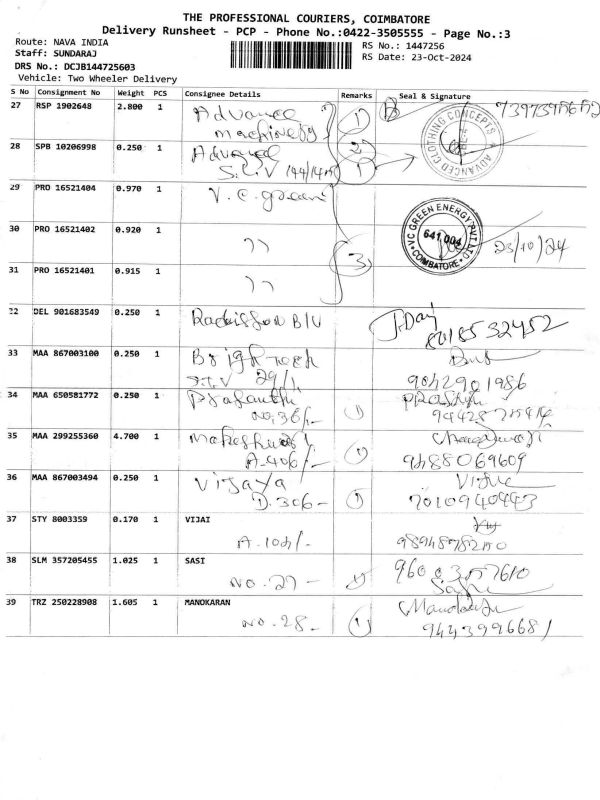 THE PROFESSIONAL COURIERS, COIMBATORE
Delivery Runsheet - PCP - Phone No.:0422-3505555 - Page No.:3
Route: NAVA INDIA
RS No.: 1447256
Staff: SUNDARAJ
RS Date: 23-Oct-2024
DRS No.: DCJB144725603
Vehicle: Two Wheeler Delivery
S No Consignment No Weight PCS Consignee Details Remarks Seal & Signature
27 RSP 1902648 2.800 1 Advance machinery 1
28 SPB 10206998 0.250 1 Advanced 2
S.I.V 144/14 1
ADVANCED CLOTHING CONCEPTS
29 PRO 16521404 0.970 1 V.C. green
V.C GREEN ENERGY PVT LTD
641 004
COIMBATORE
30 PRO 16521402 0.920 1 ,,
3 23/10/24
31 PRO 16521401 0.915 1 ,,
22 DEL 901683549 0.250 1 Radisson Blu
8018532452
33 MAA 867003100 0.250 1
29/1
9042901986
34 MAA 650581772 0.250 1 Prasanth
NO, 36/- 1
35 MAA 299255360 4.700 1
A.406/- 1 9488069609
36 MAA 867003494 0.250 1 Vijaya
D.306- 1 7010940443
37 STY 8003359 0.170 1 VIJAI
38 SLM 357205455 1.025 1 SASI
NO.27- 1
39 TRZ 250228908 1.605 1 MANOKARAN
NO.28- 1 9443996681